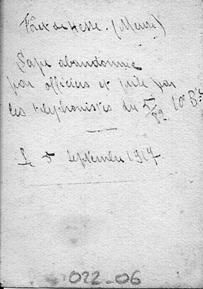 Forêt de Hesse. (Meuse)
Sape abandonnée
par officiers et prise par
les téléphonistes du 5/82 10e Bie
Le 5 septembre 1917
022_06